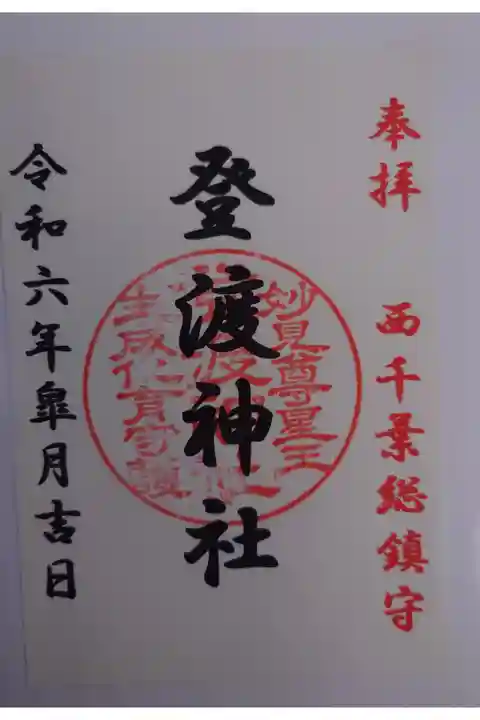 奉拝 西千葉総鎮守
登渡神社
妙見尊星王
登渡神社
生成仁育守護
令和六年皐月吉日